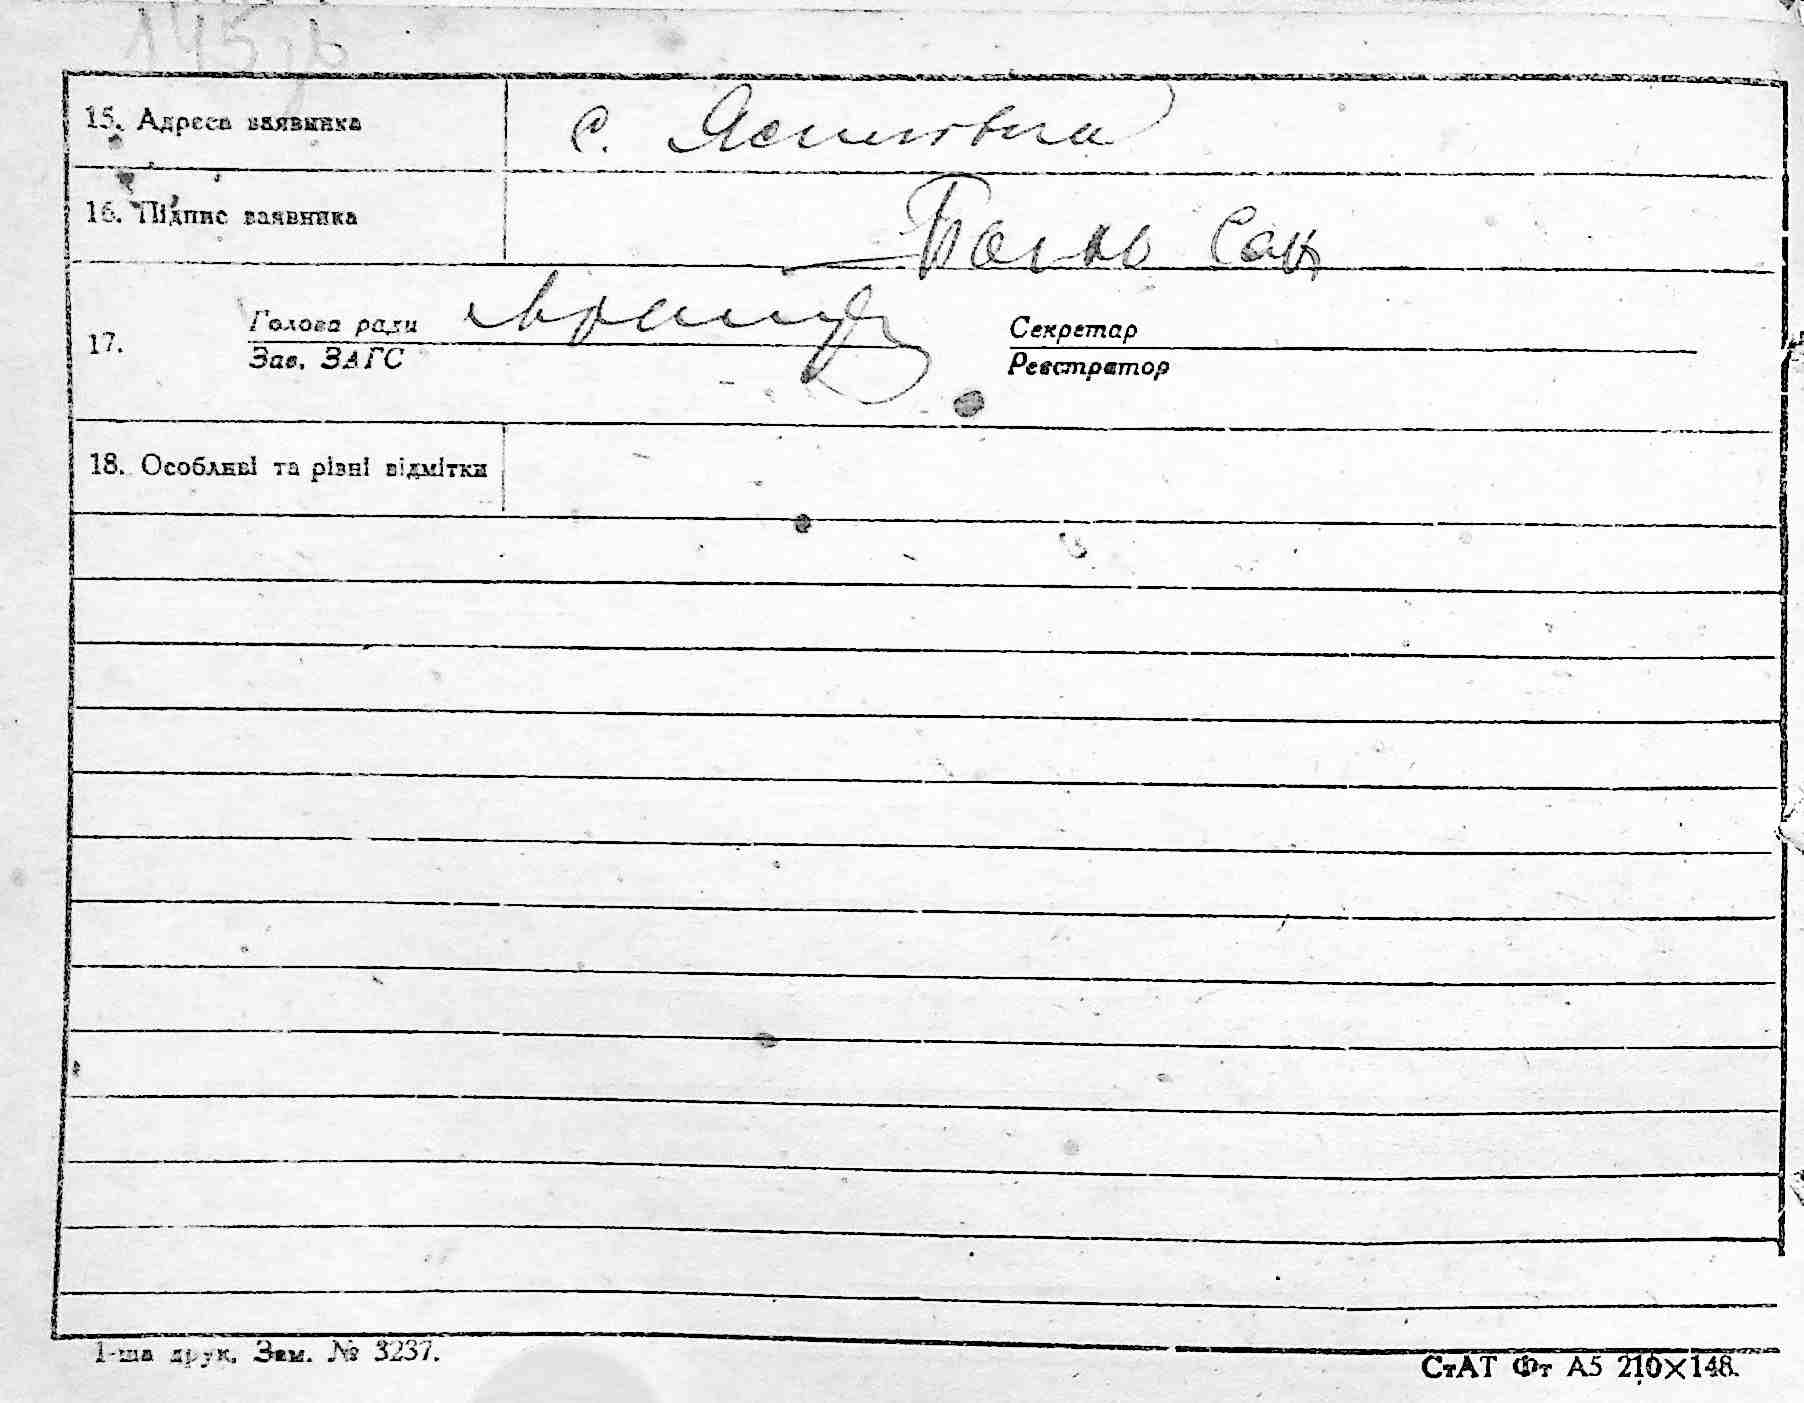 145 зв
15. Адреса заявника
с.
16. Підпис заявника
17. Голова ради Секретар
Зав. ЗАГС Реєстратор
18. Особливі та різні відмітки
1-ша друк. Зам. № 3237.
СтАТ Фт А5 210×148.